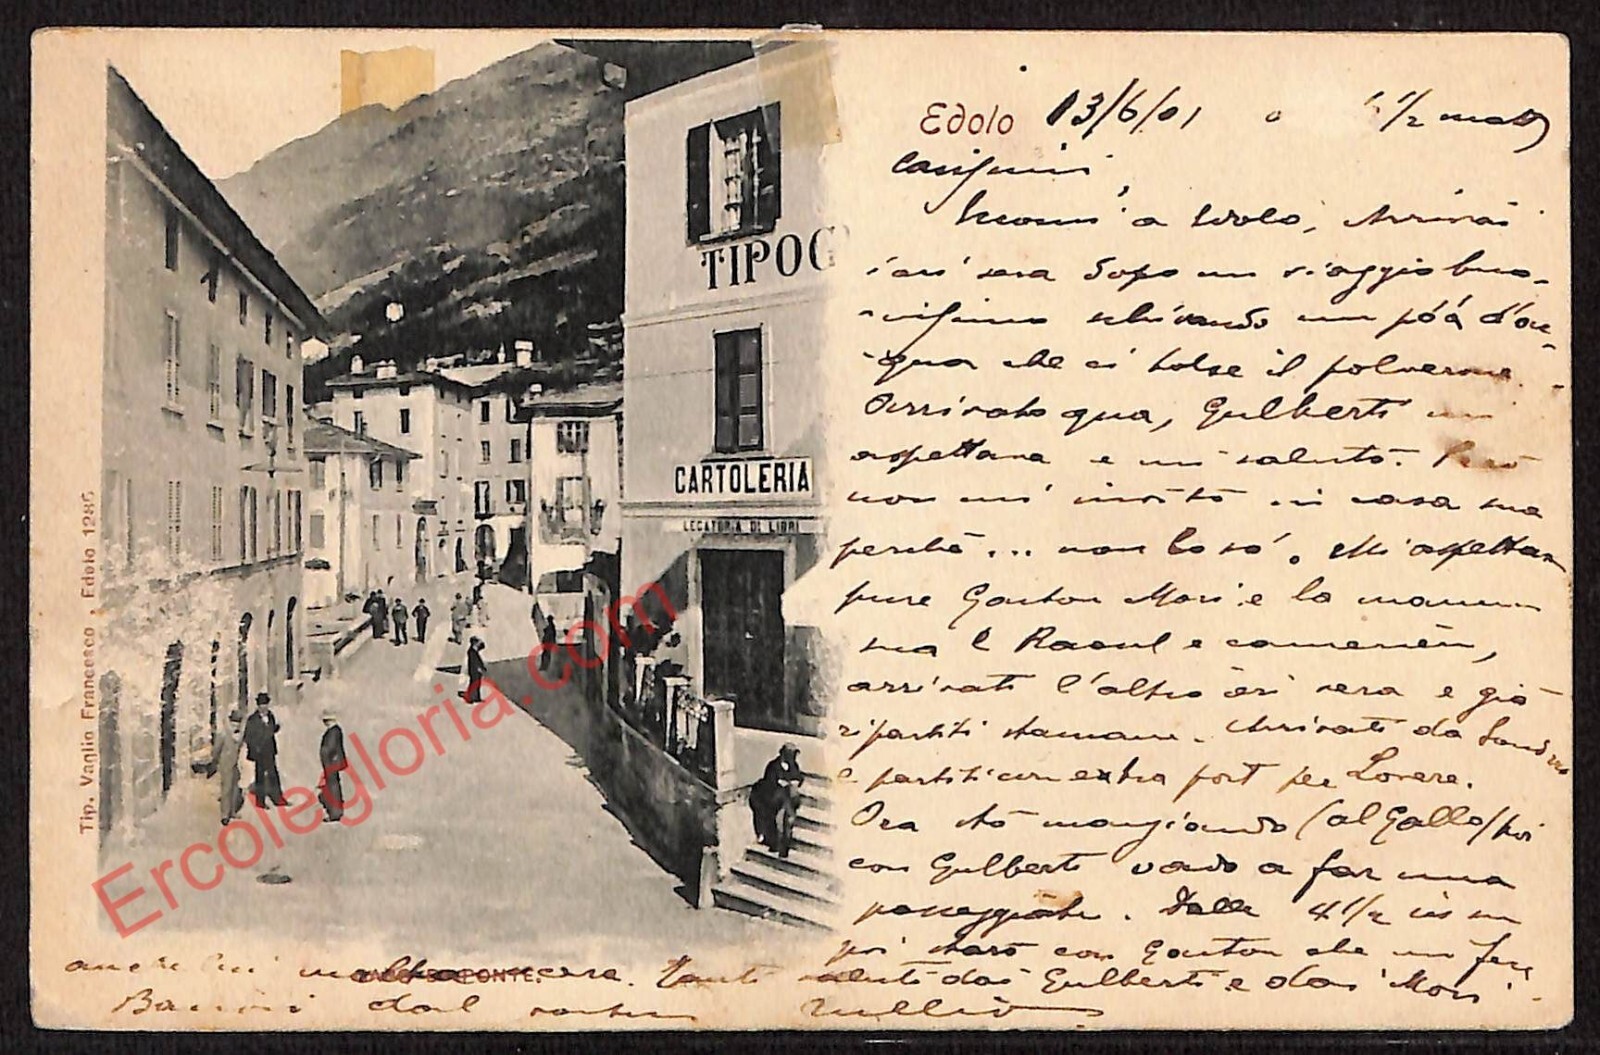 Edolo 13/6/01 1/2 matt
Carissimi,
Eccomi a Edolo, Arrivai
ieri sera dopo un viaggio buo-
nissimo schivando un pó d'ac-
qua che ci tolse il polverone.
Arrivato qua, Gulberti mi
aspettava e mi salutò. Però
non m'invitò in casa sua
perchè... non lo so'. Mi aspettava
pure Gaston Mori e la mamma
sua e Raoul e
arrivati l'altro ieri sera e già
ripartiti stamane. Arrivati da
e partiti con extra port per Lovere.
Ora stò mangiando (al Gallo) poi
con Gulberti vado a far una
passeggiata. Dalle 4 1/2 in su
poi starò con Gaston che mi fece
anche lui molta cera. Tanti saluti dai Gulberti e dai Mori
Bacioni dal vostro Tullio
TIPOG
CARTOLERIA
LEGATORIA DI LIBRI
PONTE.
Tip. Vaglio Francesco, Edolo 1285
Ercolegloria.com